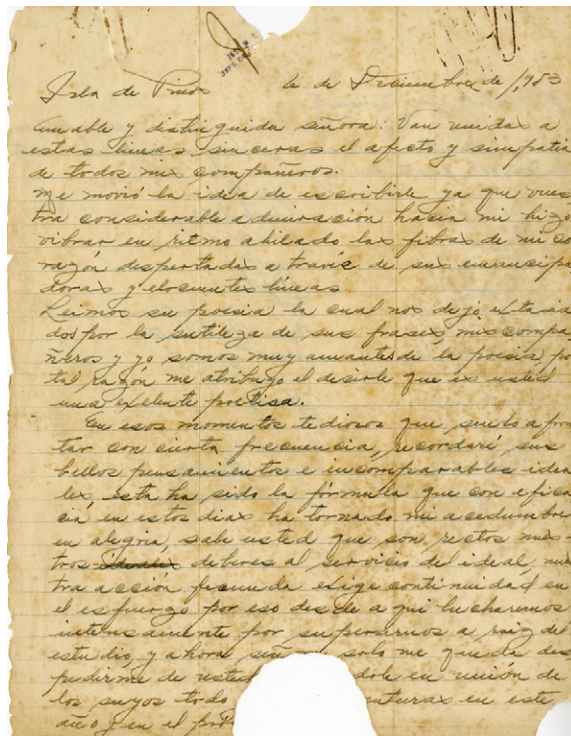 Isla de Pinos 6 de Diciembre de 1,953
Amable y distinguida señora: Van unidas a
estas lineas sinceras el afecto y simpatia
de todos mis compañeros.
Me movió la idea de escribirle ya que vues
tra considerable admiración hacia mi hizo
vibrar en ritmo ahilado las fibras de mi co
razón despertadas a través de sus emancipa
doras y elocuentes líneas
Leimos su poesia la cual nos dejó extasia
dos por la sutileza de sus frases, mis compa
ñeros y yo somos muy amantes de la poesia, po
tal razón me atribuyo el decirle que es usted
una exelente poetisa.
En esos momentos tediosos que suelo afron
tar con cierta frecuencia, recordaré sus
bellos pensamientos e incomparables idea
les esta ha sido la fórmula que con efica
cia en estos dias ha tornado mi acedumbre
en alegria, sabe usted que son rectos nues
tros deberes al servicio del ideal, nues
tra acción fecunda exige continuidad en
el esfuerzo por eso desde aqui lucharemos
intensamente por superarnos a raiz del
estudio, y ahora solo me queda des
pedirme de usted dole en unión de
los suyos todo enturas en este
año y en el